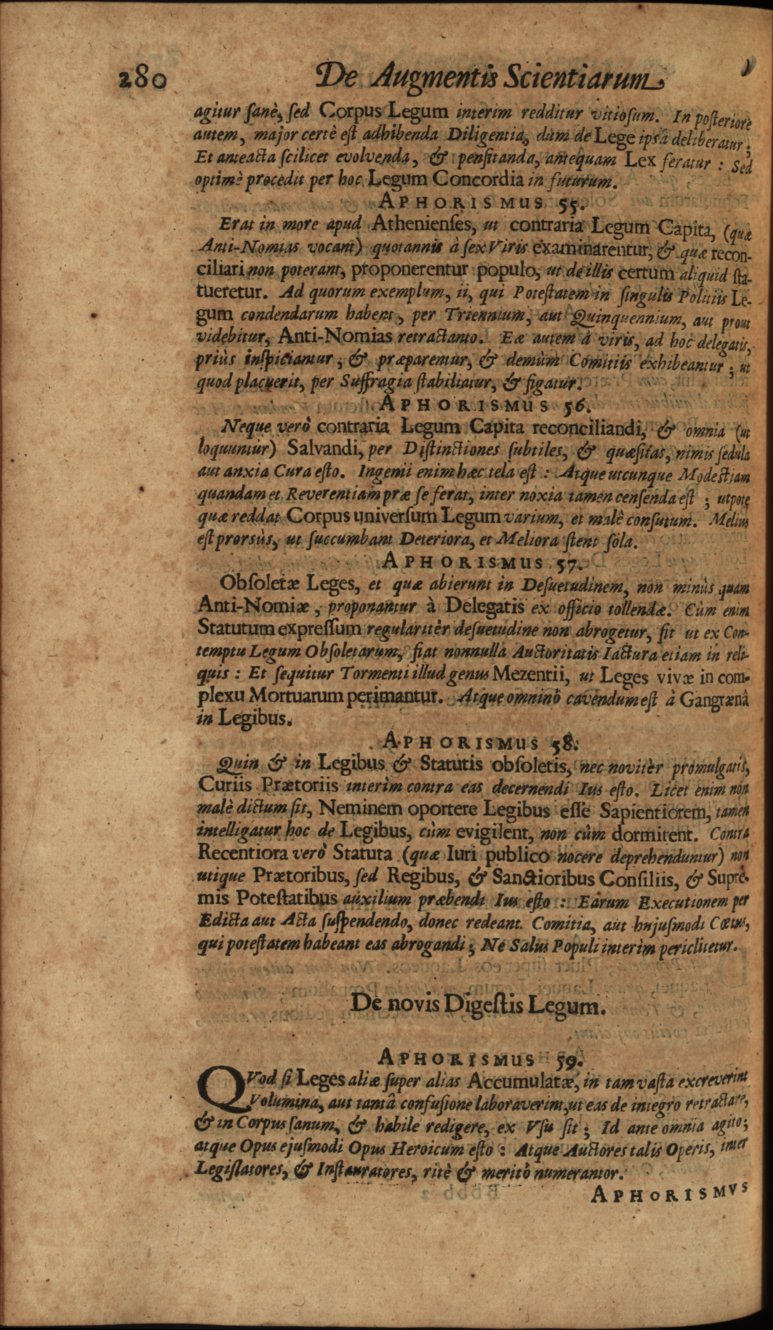 280 De Augmentis Scientiarum
agitur sanè, sed Corpus Legum interim redditur vitiosum. In posteriore
autem, major certè est adhibenda Diligentia, dùm de Lege ipsâ deliberatur;
Et anteacta scilicet evolvenda, & pensitanda, antequam Lex feratur : Sed
optimè procedit per hoc Legum Concordia in futurum.
APHORISMUS 55.
Erat in more apud Athenienses, ut contraria Legum Capita, (quæ
Anti-Nomias vocant) quotannis à sex Viris examinarentur, & quæ recon-
ciliari non poterant, proponerentur populo, ut de illis certum aliquid sta-
tueretur. Ad quorum exemplum, ii, qui Potestatem in singulis Politiis Le-
gum condendarum habent, per Triennium, aut Quinquennium, aut prout
videbitur, Anti-Nomias retractanto. Eæ autem à viris, ad hoc delegatis,
priùs inspiciantur, & præparentur, & demùm Comitiis exhibeantur ; ut
quod placuerit, per Suffragia stabiliatur, & figatur.
APHORISMUS 56.
Neque verò contraria Legum Capita reconciliandi, & omnia (ut
loquuntur) Salvandi, per Distinctiones subtiles, & quæsitas, nimis sedula
aut anxia Cura esto. Ingenii enim hæc tela est : Atque utcunque Modestiam
quandam et Reverentiam præ se ferat, inter noxia tamen censenda est ; utpote
quæ reddat Corpus universum Legum varium, et malè consutum. Melius
est prorsùs, ut succumbant Deteriora, et Meliora stent sola.
APHORISMUS 57.
Obsoletæ Leges, et quæ abierunt in Desuetudinem, non minùs quam
Anti-Nomiæ, proponantur à Delegatis ex officio tollendæ. Cùm enim
Statutum expressum regularitèr desuetudine non abrogetur, fit ut ex Con-
temptu Legum Obsoletarum, fiat nonnulla Auctoritatis Iactura etiam in reli-
quis : Et sequitur Tormenti illud genus Mezentii, ut Leges vivæ in com-
plexu Mortuarum perimantur. Atque omninò cavendum est à Gangrænâ
in Legibus.
APHORISMUS 58.
Quin & in Legibus & Statutis obsoletis, nec novitèr promulgatis,
Curiis Prætoriis interìm contra eas decernendi Ius esto. Licet enim non
malè dictum sit, Neminem oportere Legibus esse Sapientiorem, tamen
intelligatur hoc de Legibus, cùm evigilent, non cùm dormitent. Contra
Recentiora verò Statuta (quæ Iuri publico nocere deprehenduntur) non
utique Prætoribus, sed Regibus, & Sanctioribus Consiliis, & Supre-
mis Potestatibus auxilium præbendi Ius esto : Earum Executionem per
Edicta aut Acta suspendendo, donec redeant Comitia, aut hujusmodi Cœtus,
qui potestatem habeant eas abrogandi ; Ne Salus Populi interim periclitetur.
De novis Digestis Legum.
APHORISMUS 59.
QVod si Leges aliæ super alias Accumulatæ, in tam vasta excreverint
Volumina, aut tantâ confusione laboraverint, ut eas de integro retractare,
& in Corpus sanum, & habile redigere, ex Vsu sit ; Id ante omnia agito ;
atque Opus ejusmodi Opus Heroicum esto : Atque Auctores talis Operis, inter
Legislatores, & Instauratores, ritè & meritò numerantor.
APHORISMVS